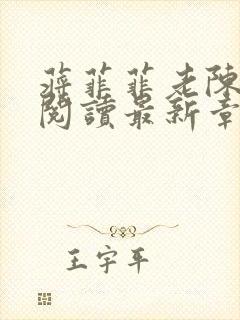 蔣菲菲老陳
閱讀最新章
王宇平